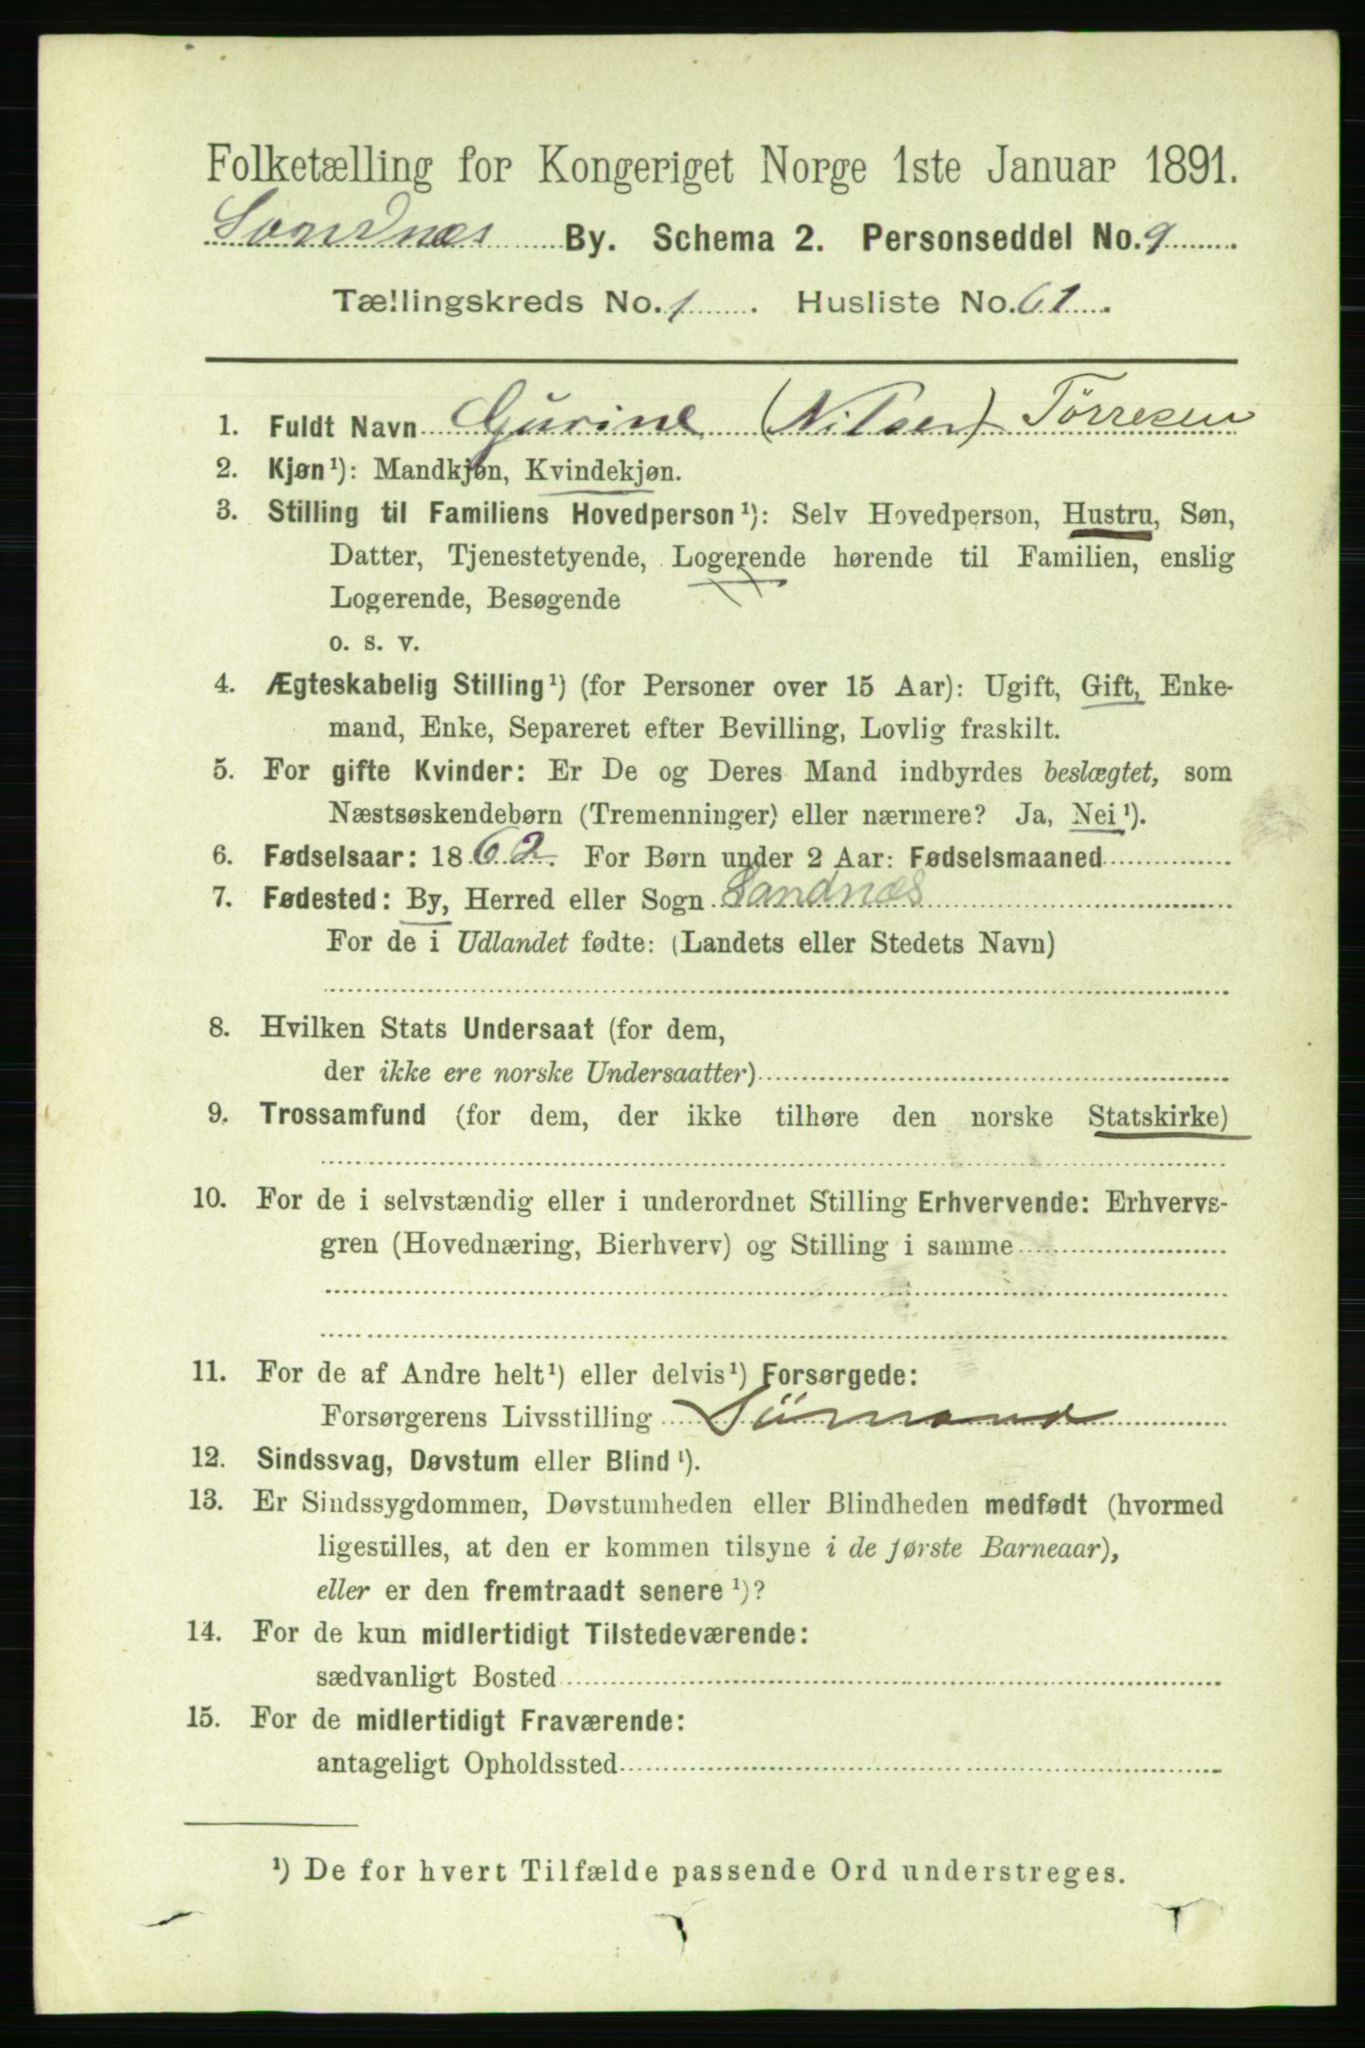 Folketælling for Kongeriget Norge 1ste Januar 1891.
Sandnæs By. Schema 2. Personseddel No. 9
Tællingskreds No. 1. Husliste No. 61.
1. Fuldt Navn Gurine (Nilsen) Törresen
2. Kjøn¹): Mandkjøn, Kvindekjøn.
3. Stilling til Familiens Hovedperson¹): Selv Hovedperson, Hustru, Søn,
Datter, Tjenestetyende, Logerende hørende til Familien, enslig
Logerende, Besøgende
o. s. v.
4. Ægteskabelig Stilling¹) (for Personer over 15 Aar): Ugift, Gift, Enke-
mand, Enke, Separeret efter Bevilling, Lovlig fraskilt.
5. For gifte Kvinder: Er De og Deres Mand indbyrdes beslægtet, som
Næstsøskendebørn (Tremenninger) eller nærmere? Ja, Nei¹).
6. Fødselsaar: 1862. For Børn under 2 Aar: Fødselsmaaned
7. Fødested: By, Herred eller Sogn Sandnæs
For de i Udlandet fødte: (Landets eller Stedets Navn)
8. Hvilken Stats Undersaat (for dem,
der ikke ere norske Undersaatter)
9. Trossamfund (for dem, der ikke tilhøre den norske Statskirke)
10. For de i selvstændig eller i underordnet Stilling Erhvervende: Erhvervs-
gren (Hovednæring, Bierhverv) og Stilling i samme
11. For de af Andre helt¹) eller delvis¹) Forsørgede:
Forsørgerens Livsstilling Sömand
12. Sindssvag, Døvstum eller Blind¹).
13. Er Sindssygdommen, Døvstumheden eller Blindheden medfødt (hvormed
ligestilles, at den er kommen tilsyne i de første Barneaar),
eller er den fremtraadt senere¹)?
14. For de kun midlertidigt Tilstedeværende:
sædvanligt Bosted
15. For de midlertidigt Fraværende:
antageligt Opholdssted
¹) De for hvert Tilfælde passende Ord understreges.